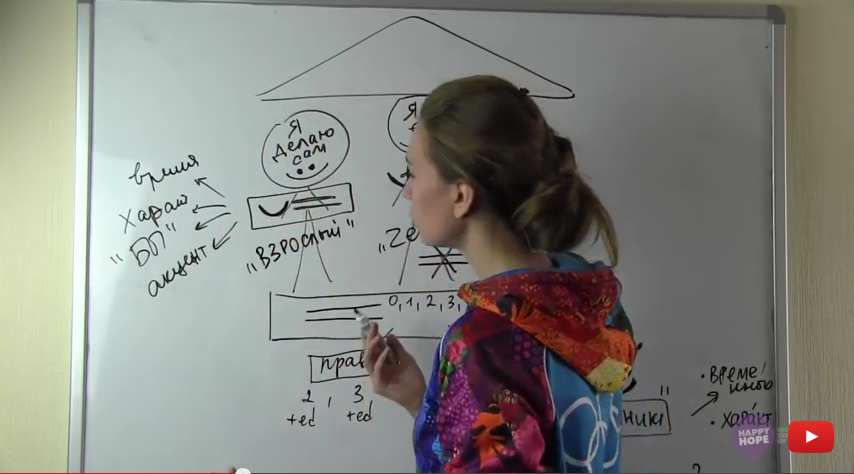 Я
делаю
сам
Я
время
"БП"
акцент
"ВЗРОСЛЫЙ"
0, 1, 2, 3,
прав
2, 3
+ed +ed
ники"
• време/
• характ
HAPPY
HOPE
2